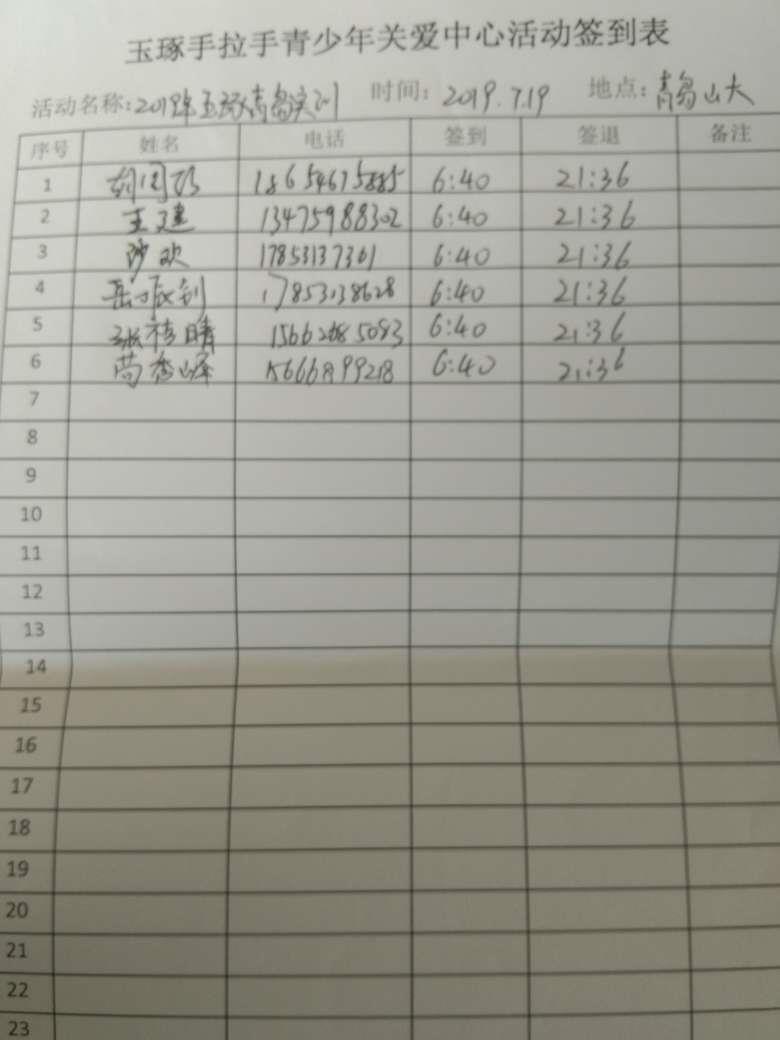 玉琢手拉手青少年关爱中心活动签到表
活动名称:2019年玉琢青岛实训 时间: 2019.7.19 地点: 青岛山大
序号 姓名 电话 签到 签退 备注
1 6:40 21:36
2 王建 13475988302 6:40 21:36
3 沙欢 17853137301 6:40 21:36
4 17853138628 6:40 21:36
5 6:40 21:36
6 15666899218 6:40 21:36
7
8
9
10
11
12
13
14
15
16
17
18
19
20
21
22
23